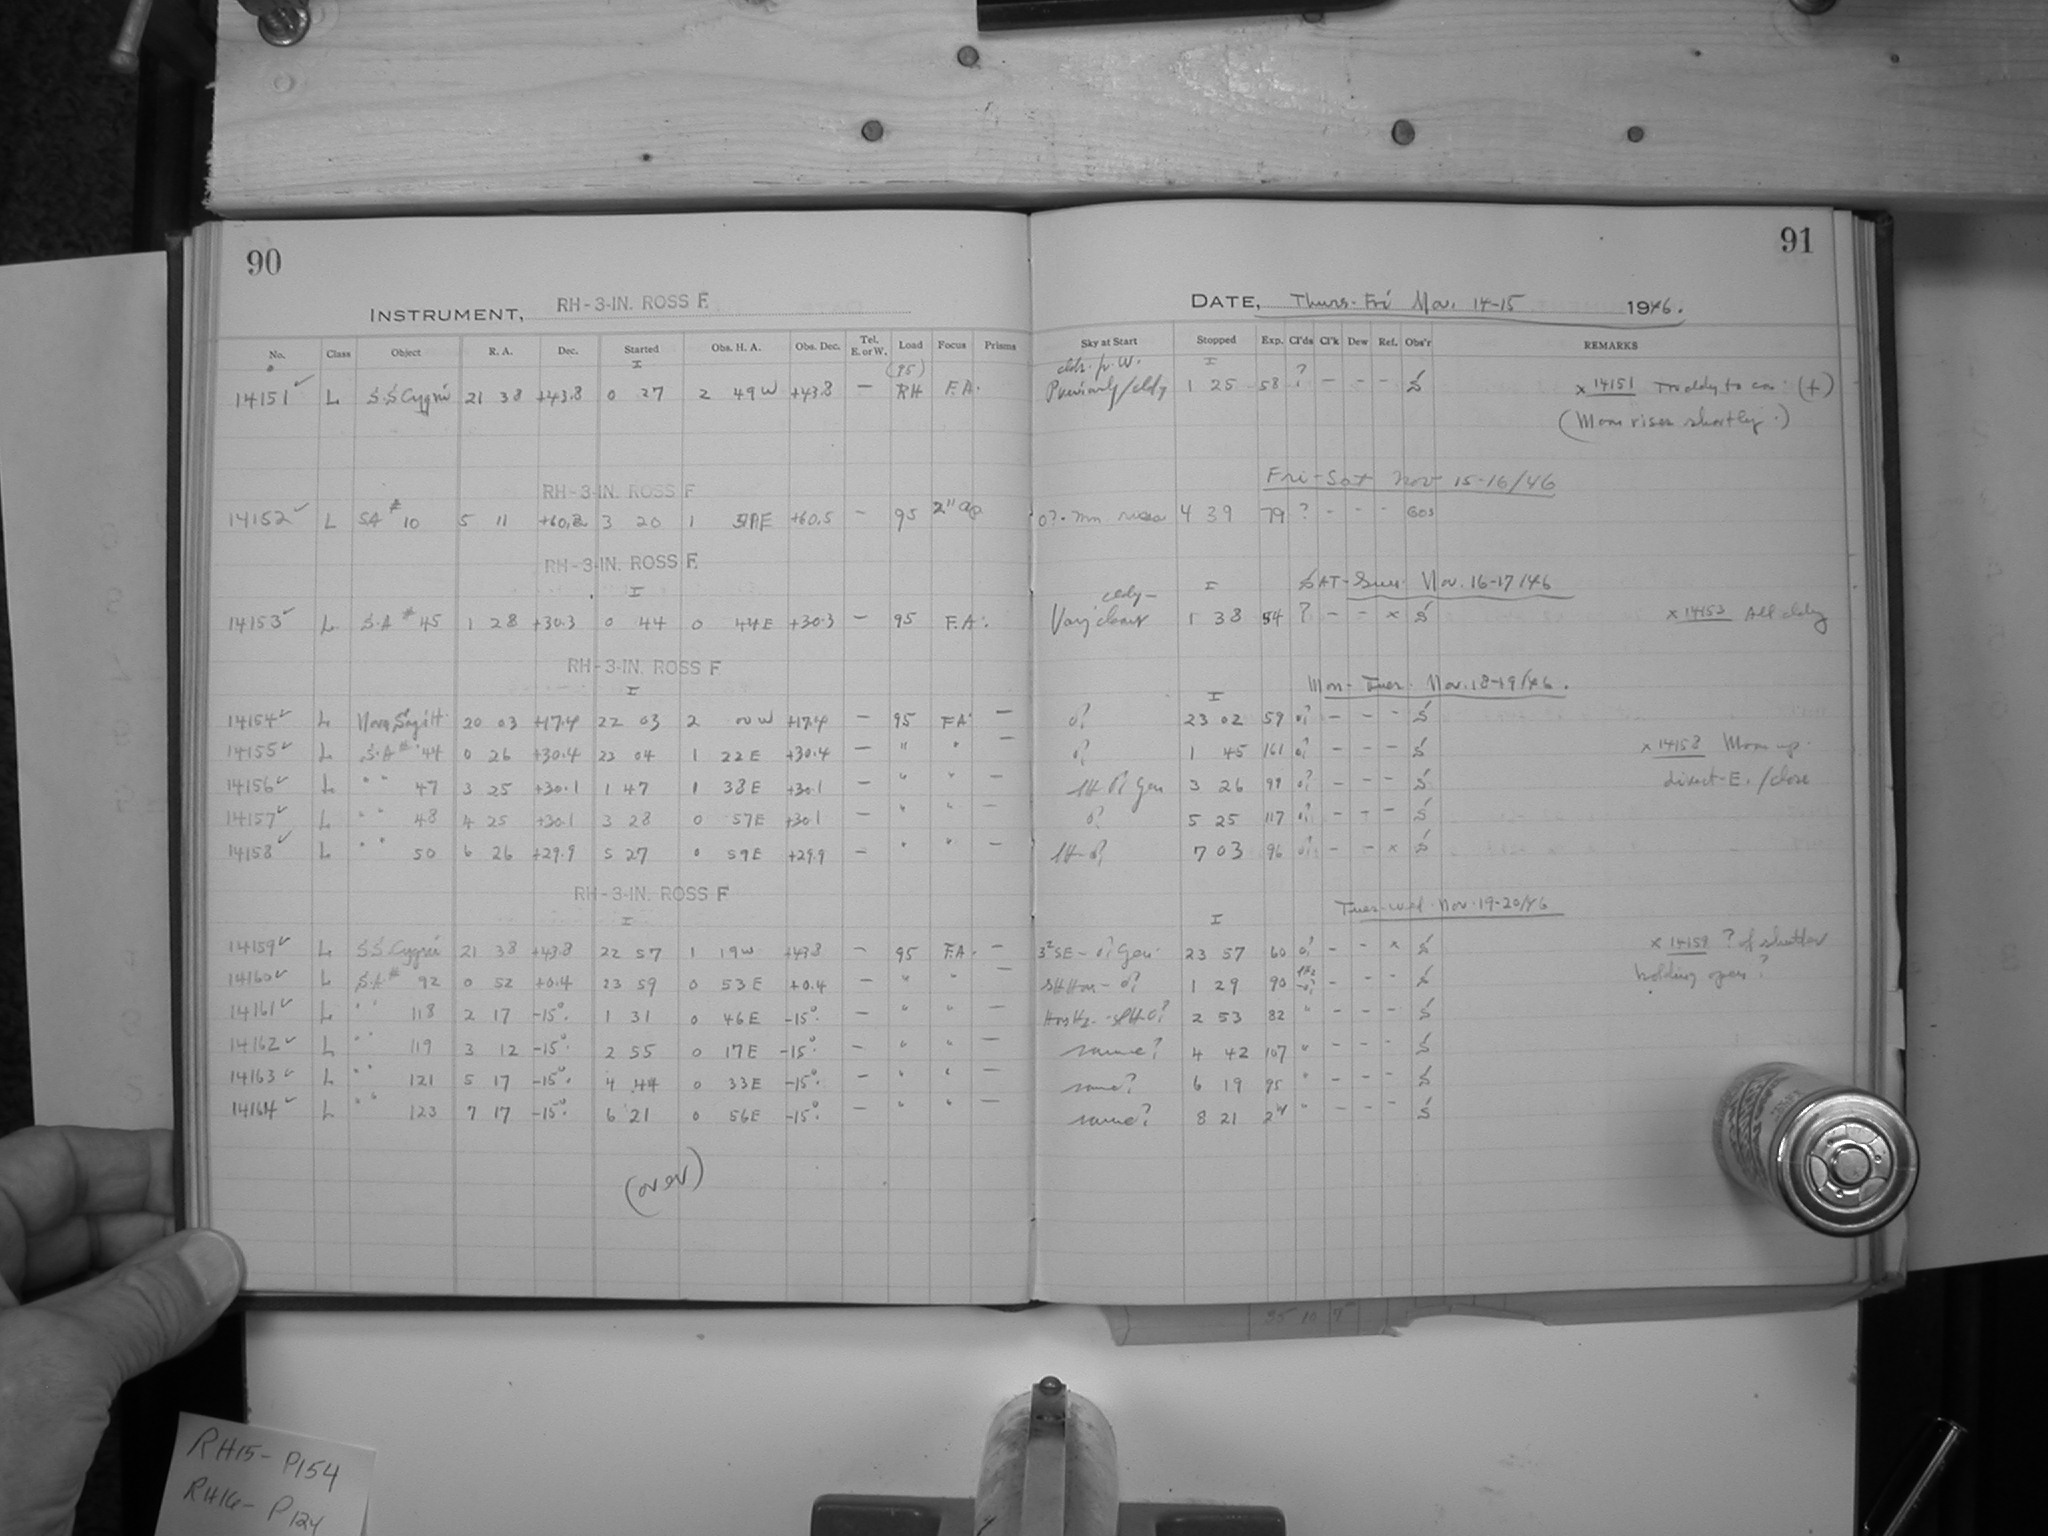 90
INSTRUMENT, RH-3-IN. ROSS F.
No. Class Object R. A. Dec. Started Obs. H. A. Obs. Dec. Tel. E. or W. Load Focus Prisms
14151 L S.S Cygni 21 38 +43.8 0 27 2 49W +43.8 — (95) RH F.A.
RH-3-IN. ROSS F.
14152 L SA # 10 5 11 3 20 1 +60.5 - 95 2" ap
RH-3-IN. ROSS F.
14153 L S.A # 45 1 28 +30.3 0 44 0 44E +30.3 — 95 F.A.
RH-3-IN. ROSS F.
14154 L Nova Sagitt. 20 03 +17.4 22 03 2 00W +17.4 — 95 F.A. —
14155 L S.A # 44 0 26 +30.4 23 04 1 22E +30.4 — " " —
14156 L " " 47 3 25 +30.1 1 47 1 38E +30.1 — " " —
14157 L " " 48 4 25 +30.1 3 28 0 57E +30.1 — " " —
14158 L " " 50 6 26 +29.9 5 27 0 59E +29.9 — " " —
RH-3-IN. ROSS F
14159 L SS Cygni 21 38 +43.8 22 57 1 19W +43.8 — 95 F.A. —
14160 L S.A # 92 0 52 +0.4 23 59 0 53E +0.4 — " " —
14161 L " " 118 2 17 -15° 1 31 0 46E -15° — " " —
14162 L " " 119 3 12 -15° 2 55 0 17E -15° — " " —
14163 L " " 121 5 17 -15° 4 44 0 33E -15° — " " —
14164 L " " 123 7 17 -15° 6 21 0 56E -15° — " " —
(over)
91
DATE, Thurs-Fri Nov. 14-15 1946.
Sky at Start Stopped Exp. Cl'ds Cl'k Dew Ref. Obs'r REMARKS
1 25 58 ? - - - S x 14151 to con: (+)
(Moon rises shortly.)
Fri-Sat Nov 15-16/46
0?. mn rises 4 39 79 ? - - - GOS
SAT-Sun. Nov. 16-17/46
cldy-
1 38 54 ? - - x S x 14153 All cldy
Mon-Tues. Nov. 18-19/46.
0? 23 02 59 0? - - - S
0? 1 45 161 0? - - - S x 14158 Moon up.
3 26 99 0? - - - S direct-E. /close
0? 5 25 117 0? - - - S
7 03 96 0? - - x S
Tues-Wed. Nov. 19-20/46
23 57 60 0? - - x S x 14159 ? of shutter
1 29 90 - - - S holding open?
2 53 82 " - - - S
same? 4 42 107 " - - - S
same? 6 19 95 " - - - S
same? 8 21 " - - - S
35 10 7
RH15- P154
RH16- P124